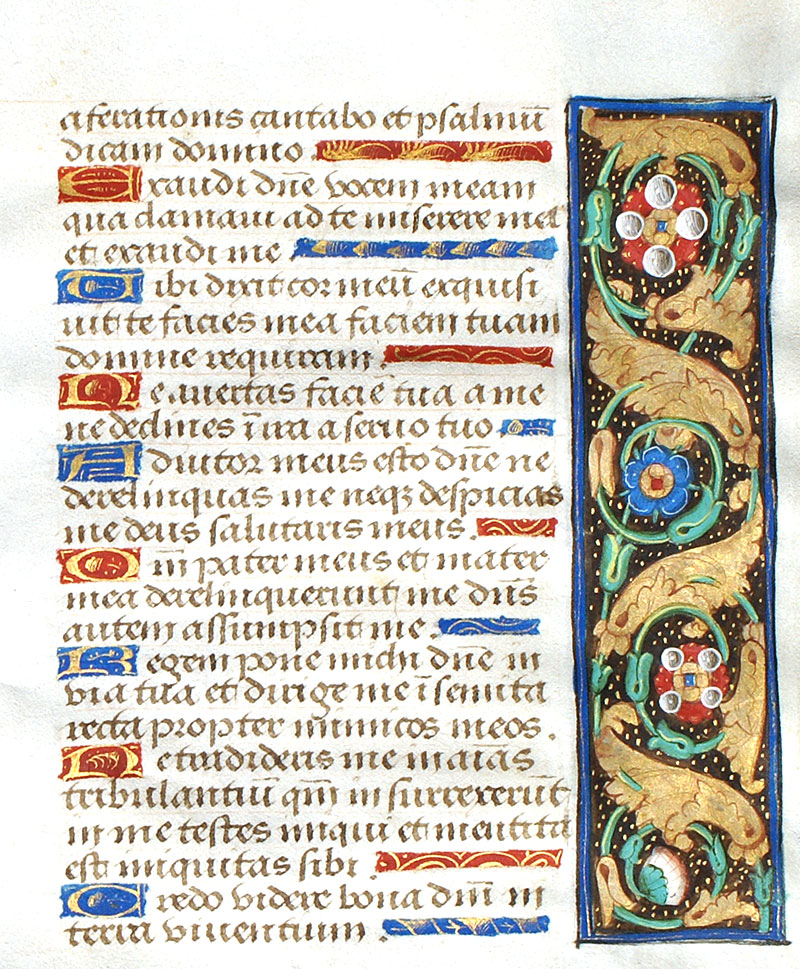 ciferationis cantabo et psalmū
dicam domino
Exaudi dn̄e vocem meam
qua clamaui ad te miserere mei
et exaudi me
Tibi dixit cor meū exquisi
uit te facies mea faciem tuam
domine requiram.
Ne auertas faciē tuā a me
ne declines ī ira a seruo tuo
Adiutor meus esto dn̄e ne
derelinquas me neqꝫ despicias
me deus salutaris meus.
Qm̄ pater meus et mater
mea derelinquerunt me dn̄s
autem assumpsit me.
Legem pone michi dn̄e in
via tua et dirige me ī semita
recta propter inimicos meos.
Ne tradideris me in aīas
tribulantiū qm̄ insurrexerūt
in me testes iniqui et mentita
est iniquitas sibi.
Credo videre bona dn̄i in
terra viuentium.